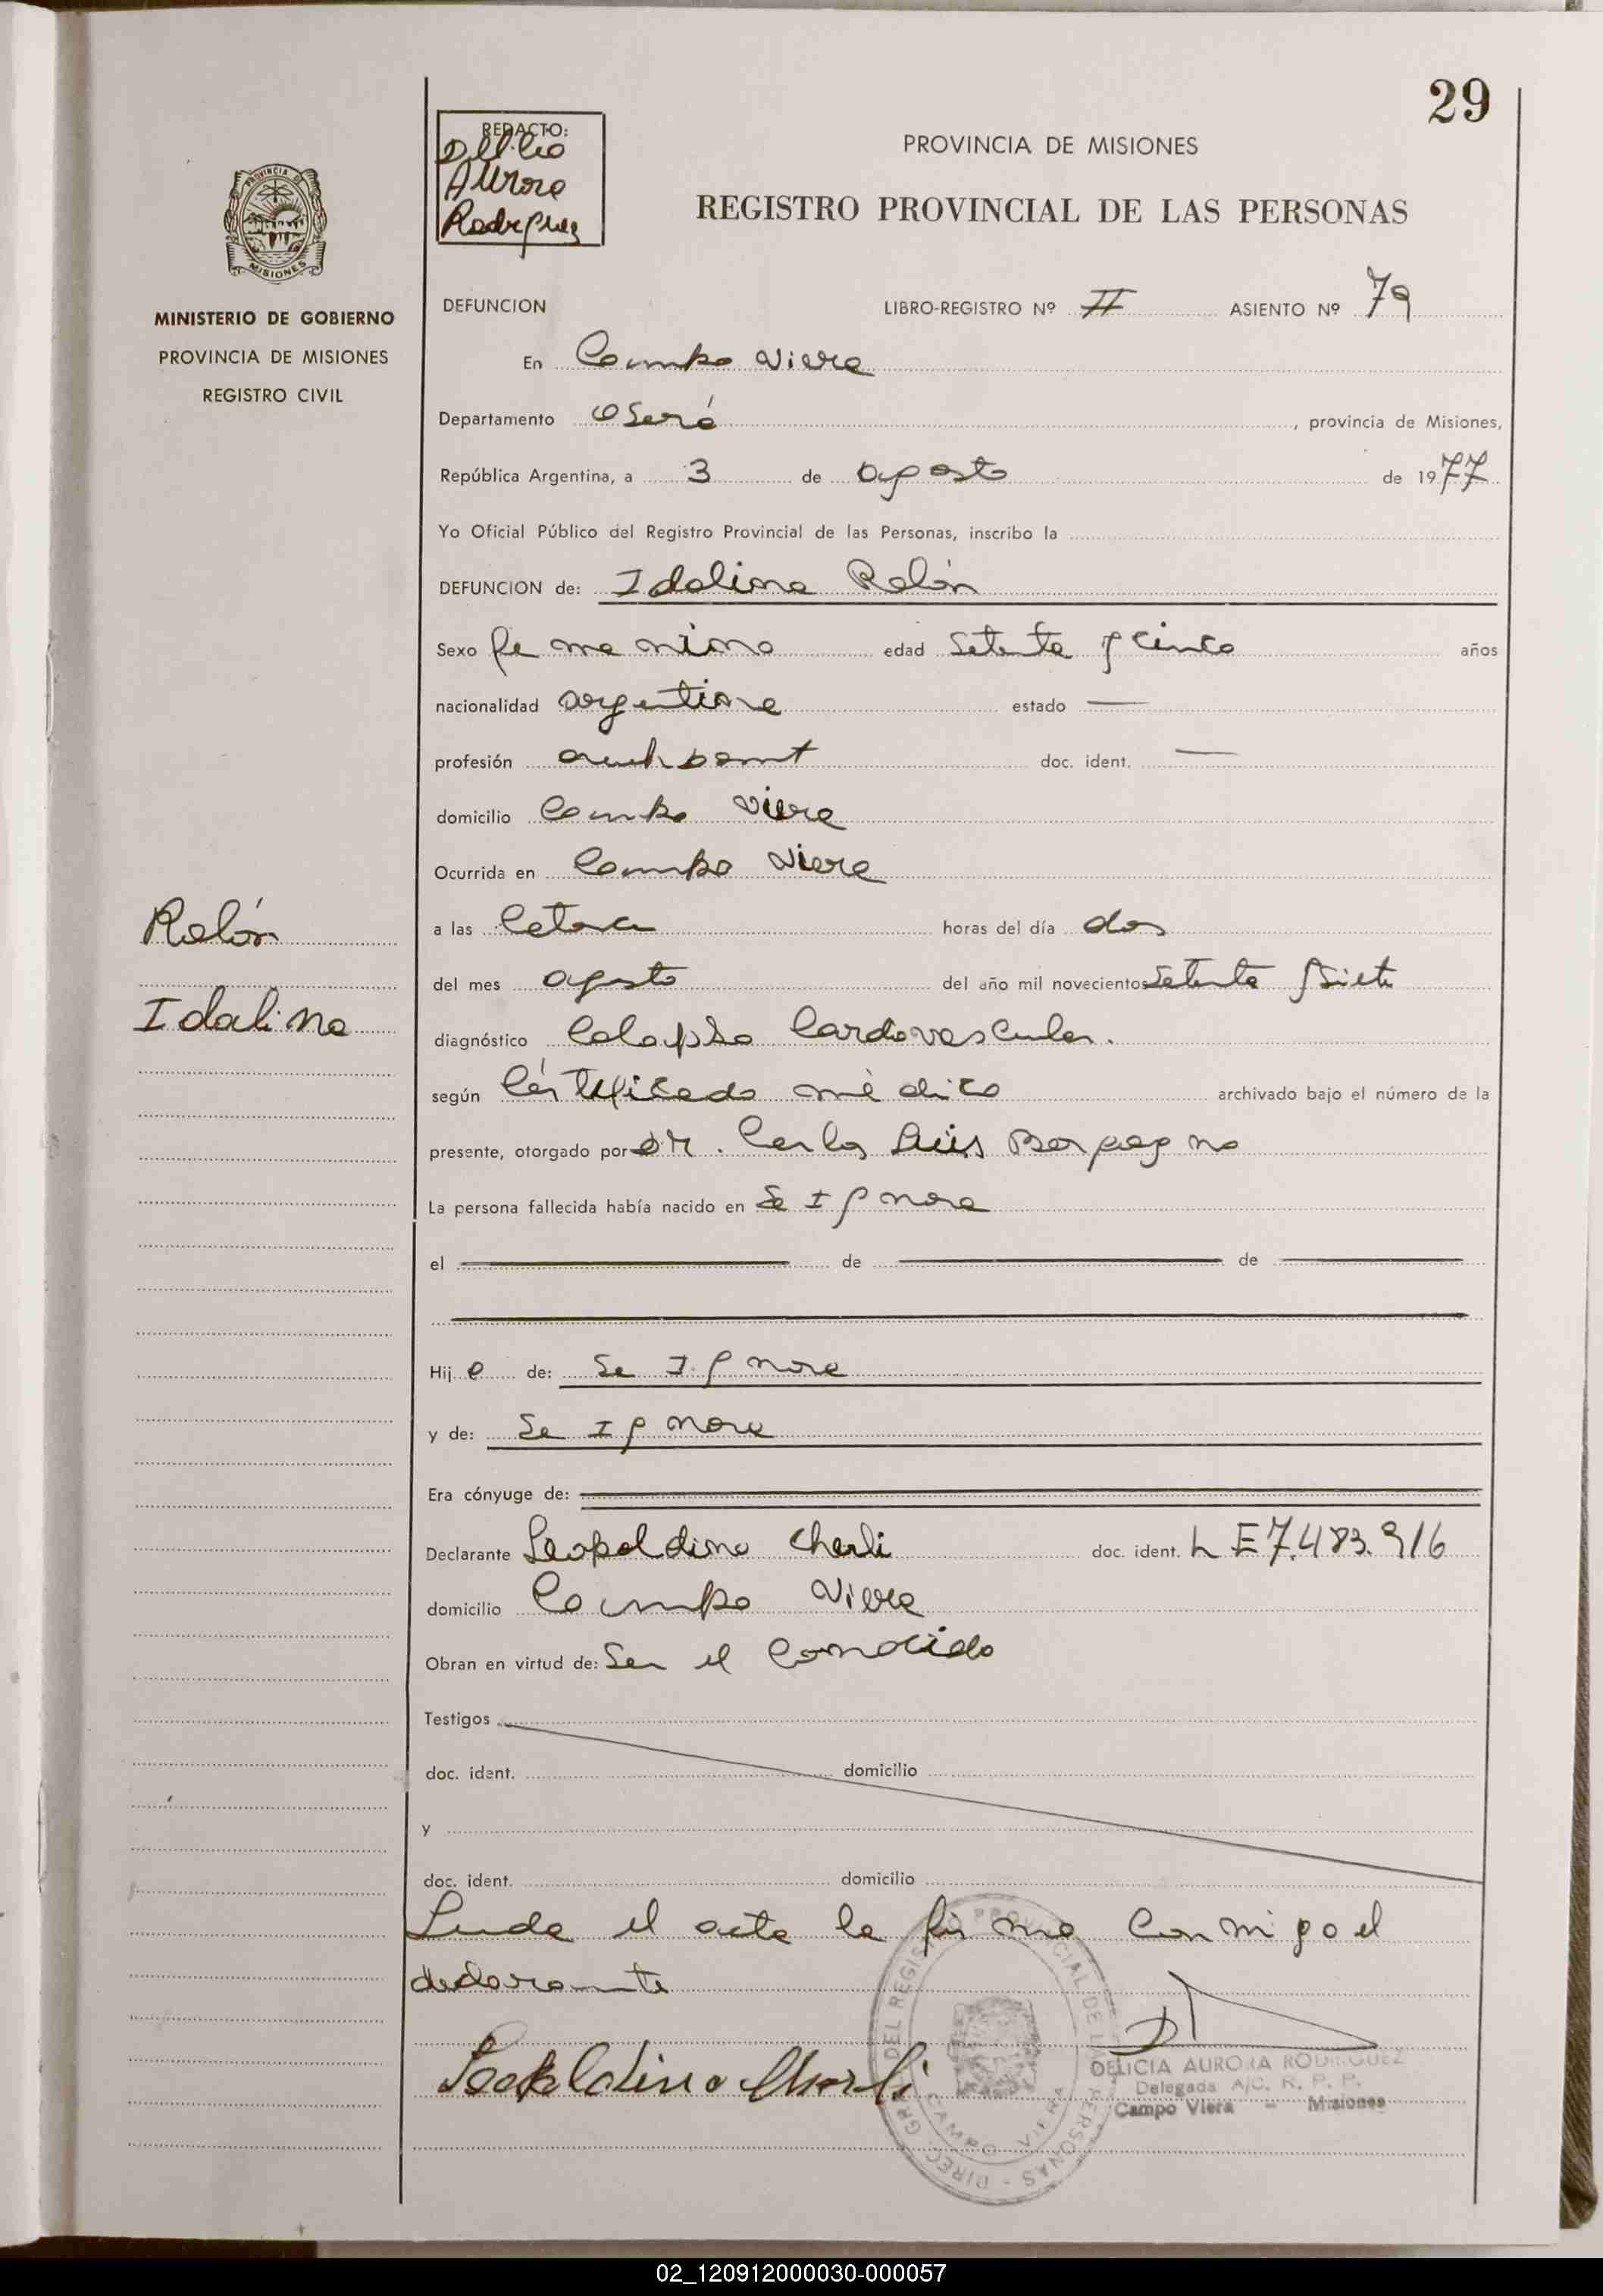 29
REDACTO:
Delicia
Aurora
Rodriguez
PROVINCIA DE MISIONES
REGISTRO PROVINCIAL DE LAS PERSONAS
PROVINCIA DE
MISIONES
MINISTERIO DE GOBIERNO
PROVINCIA DE MISIONES
REGISTRO CIVIL
DEFUNCION LIBRO-REGISTRO Nº II ASIENTO Nº 79
En Campo Viera
Departamento Oberá, provincia de Misiones,
República Argentina, a 3 de agosto de 1977
Yo Oficial Público del Registro Provincial de las Personas, inscribo la
DEFUNCION de: Idalina Rolón
Sexo femenino edad Setenta y cinco años
nacionalidad argentina estado —
profesión doc. ident. —
domicilio Campo Viera
Ocurrida en Campo Viera
Rolón
Idalina
a las Catorce horas del día dos
del mes agosto del año mil novecientos setenta y siete
diagnóstico Colapso Cardovascular.
según Certificado médico archivado bajo el número de la
presente, otorgado por Dr. Carlos Luis
La persona fallecida había nacido en Se Ignora
el de de
Hij a de: Se Ignora
y de: Se Ignora
Era cónyuge de:
Declarante Leopoldino Cherli doc. ident. L E 7.483.916
domicilio Campo Viera
Obran en virtud de: Ser el Conocido
Testigos
doc. ident. domicilio
y
doc. ident. domicilio
Leida el acta la firma Conmigo el
declarante
Leopoldino Cherli
DELICIA AURORA RODRIGUEZ
Delegada A/C. R. P. P.
Campo Viera - Misiones
DIREC. GRAL. DEL REGISTRO PROVINCIAL DE LAS PERSONAS -
CAMPO VIERA
02_120912000030-000057